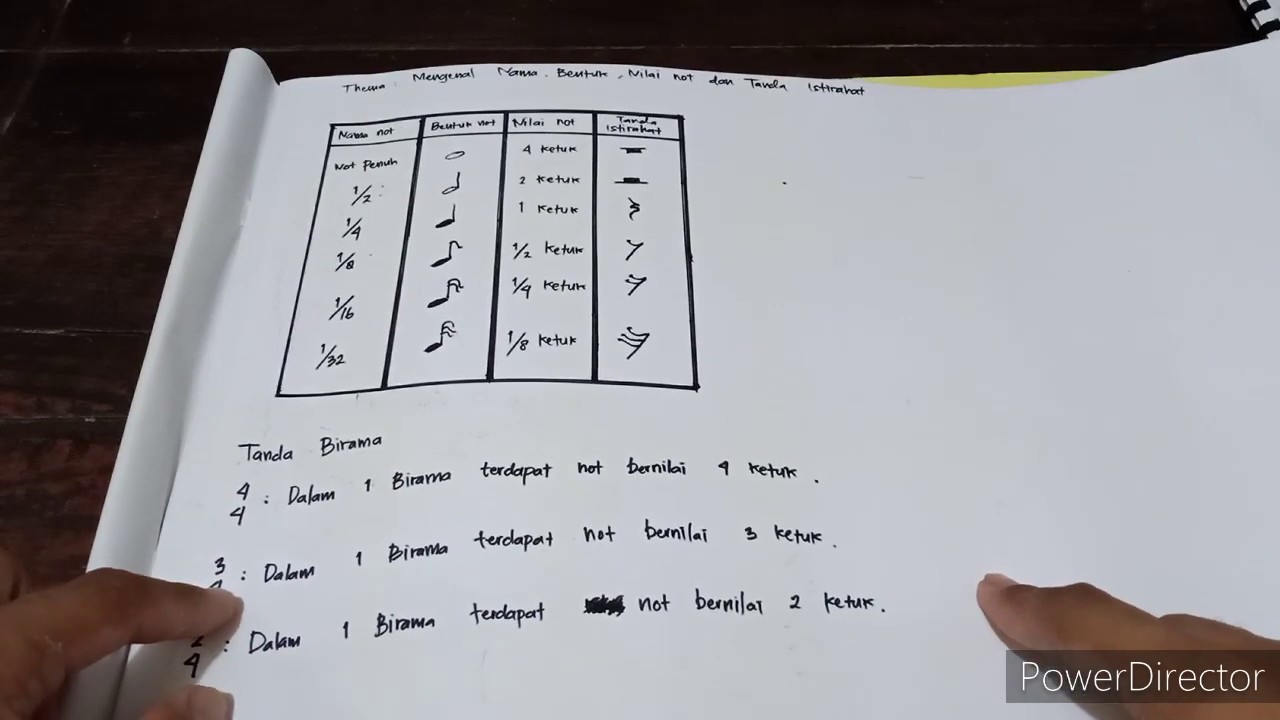 Thema : Mengenal Nama, Bentuk, Nilai not dan Tanda Istirahat
Nama not Bentuk not Nilai not Tanda Istirahat
Not Penuh 4 ketuk
1/2 2 ketuk
1/4 1 ketuk
1/8 1/2 ketuk
1/16 1/4 ketuk
1/32 1/8 ketuk
Tanda Birama
4/4 : Dalam 1 Birama terdapat not bernilai 4 ketuk.
3 : Dalam 1 Birama terdapat not bernilai 3 ketuk.
2/4 : Dalam 1 Birama terdapat not bernilai 2 ketuk.
PowerDirector